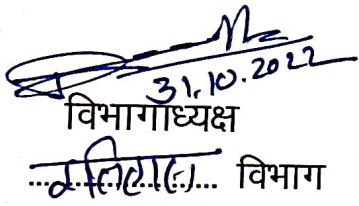 31.10.2022
विभागाध्यक्ष
इतिहास विभाग